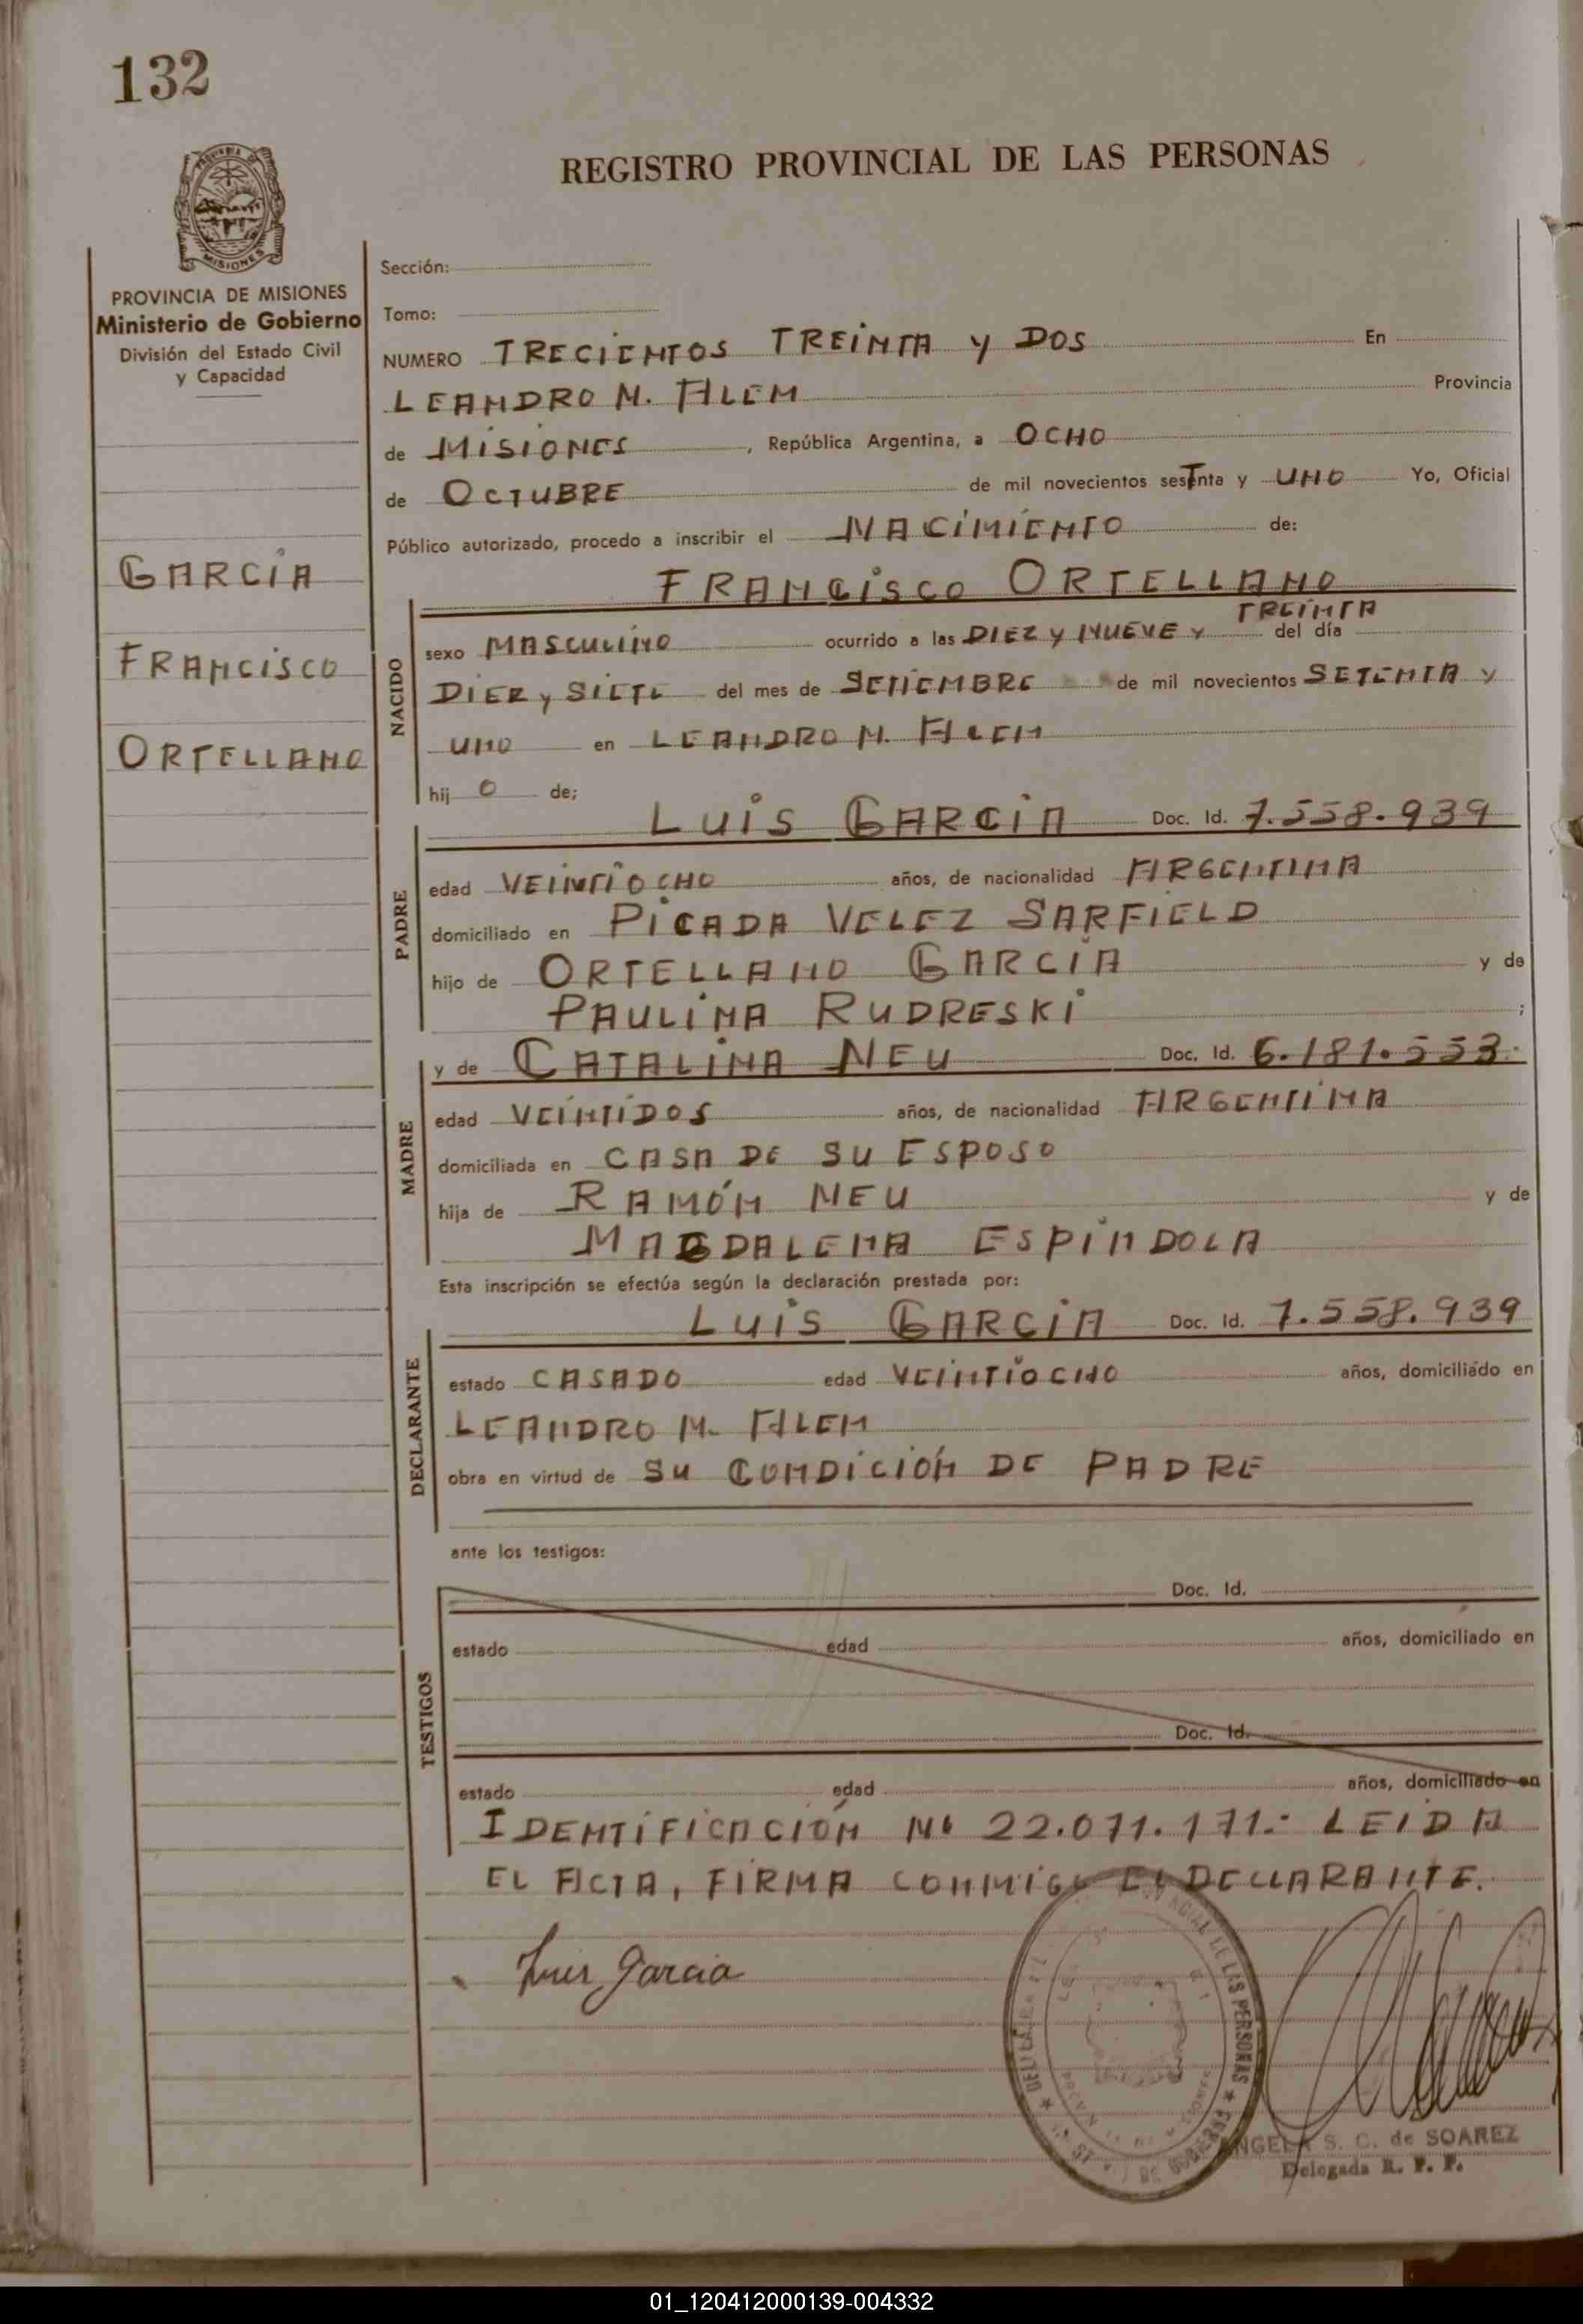 132
REGISTRO PROVINCIAL DE LAS PERSONAS
MISIONES
PROVINCIA DE MISIONES
Ministerio de Gobierno
División del Estado Civil
y Capacidad
GARCIA
FRANCISCO
ORTELLANO
Sección:
Tomo:
NUMERO TRECIENTOS TREINTA Y DOS En
LEANDRO N. ALEM Provincia
de MISIONES, República Argentina, a OCHO
de OCTUBRE de mil novecientos sesTnta y UNO Yo, Oficial
Público autorizado, procedo a inscribir el NACIMIENTO de:
FRANCISCO ORTELLANO
NACIDO
TREINTA
sexo MASCULINO ocurrido a las DIEZ Y NUEVE Y del día
DIEZ Y SIETE del mes de SETIEMBRE de mil novecientos SETENTA Y
UNO en LEANDRO N. ALEM
hij O de;
PADRE
LUIS GARCIA Doc. Id. 7.558.939
edad VEINTIOCHO años, de nacionalidad ARGENTINA
domiciliado en PICADA VELEZ SARFIELD
hijo de ORTELLANO GARCIA y de
PAULINA RUDRESKI ;
MADRE
y de CATALINA NEU Doc. Id. 6.181.553.
edad VEINTIDOS años, de nacionalidad ARGENTINA
domiciliada en CASA DE SU ESPOSO
hija de RAMÓN NEU y de
MAGDALENA ESPINDOLA
Esta inscripción se efectúa según la declaración prestada por:
DECLARANTE
LUIS GARCIA Doc. Id. 7.558.939
estado CASADO edad VEINTIOCHO años, domiciliado en
LEANDRO N. ALEM
obra en virtud de SU CONDICIÓN DE PADRE
ante los testigos:
TESTIGOS
Doc. Id.
estado edad años, domiciliado en
Doc. Id.
estado edad años, domiciliado en
IDENTIFICACIÓN Nº 22.071.171.- LEIDA
EL ACTA, FIRMA CONMIGO EL DECLARANTE.
Luis Garcia
DE LAS PERSONAS
ANGELA S. C. de SOAREZ
Delegada R. P. P.
01_120412000139-004332